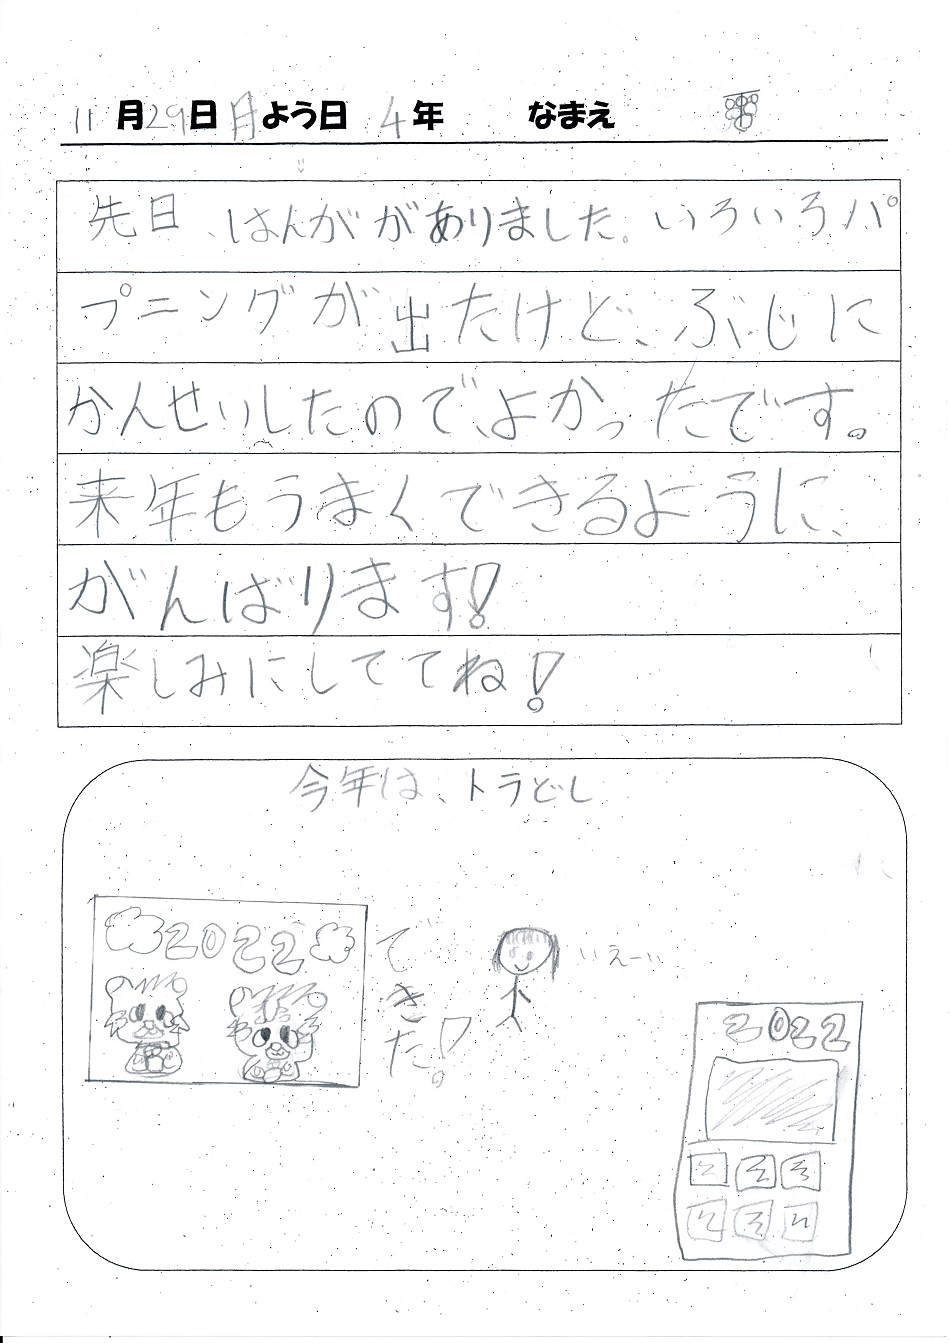 11月29日月よう日 4年 なまえ
先日、はんががありました。いろいろパ
プニングが出たけど、ぶじに
かんせいしたので、よかったです。
来年もうまくできるように、
がんばります!
楽しみにしててね!
今年は、トラどし
2022
できた!
いえーい
2022